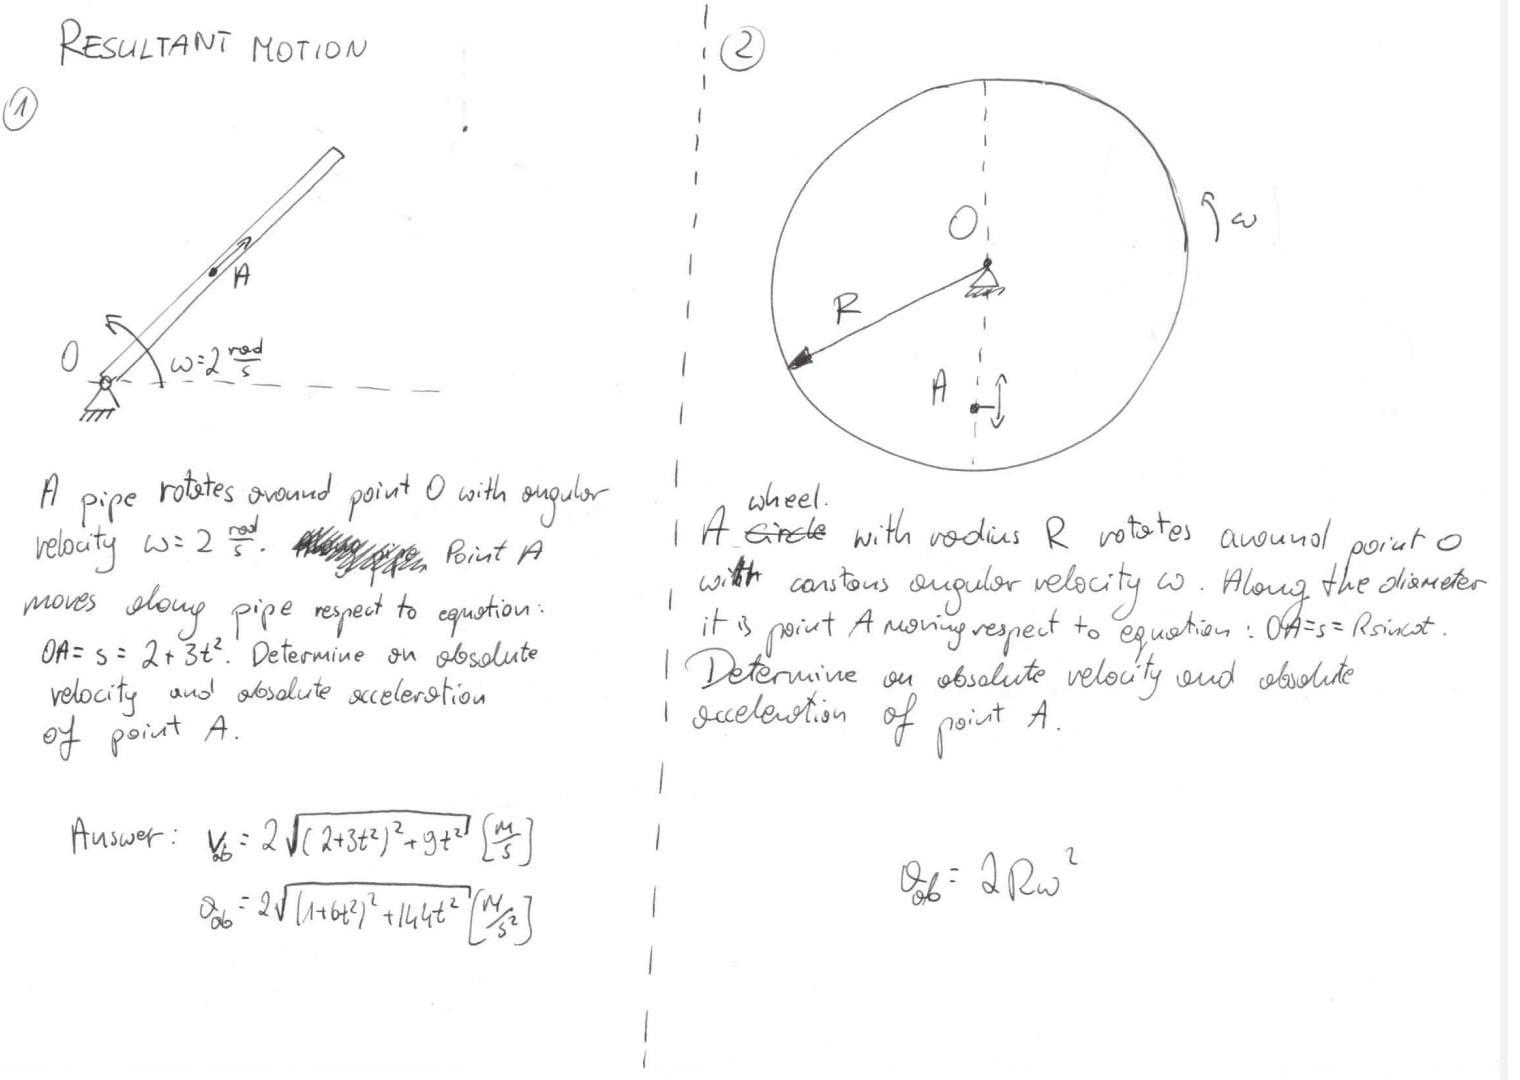 RESULTANT MOTION
①
A
O
ω=2 rad/s
A pipe rotates around point O with angular
velocity ω=2 rad/s. Point A
moves along pipe respect to equation:
OA= s = 2+3t². Determine an absolute
velocity and absolute acceleration
of point A.
Answer: Vab = 2√((2+3t²)²+9t²) [m/s]
aab = 2√((1+6t²)²+144t²) [m/s²]
②
O
ω
R
A
wheel.
A circle with radius R rotates around point O
with constans angular velocity ω. Along the diameter
it is point A moving respect to equation: OA=s=Rsinωt.
Determine an absolute velocity and absolute
acceleration of point A.
aab = 2Rω²